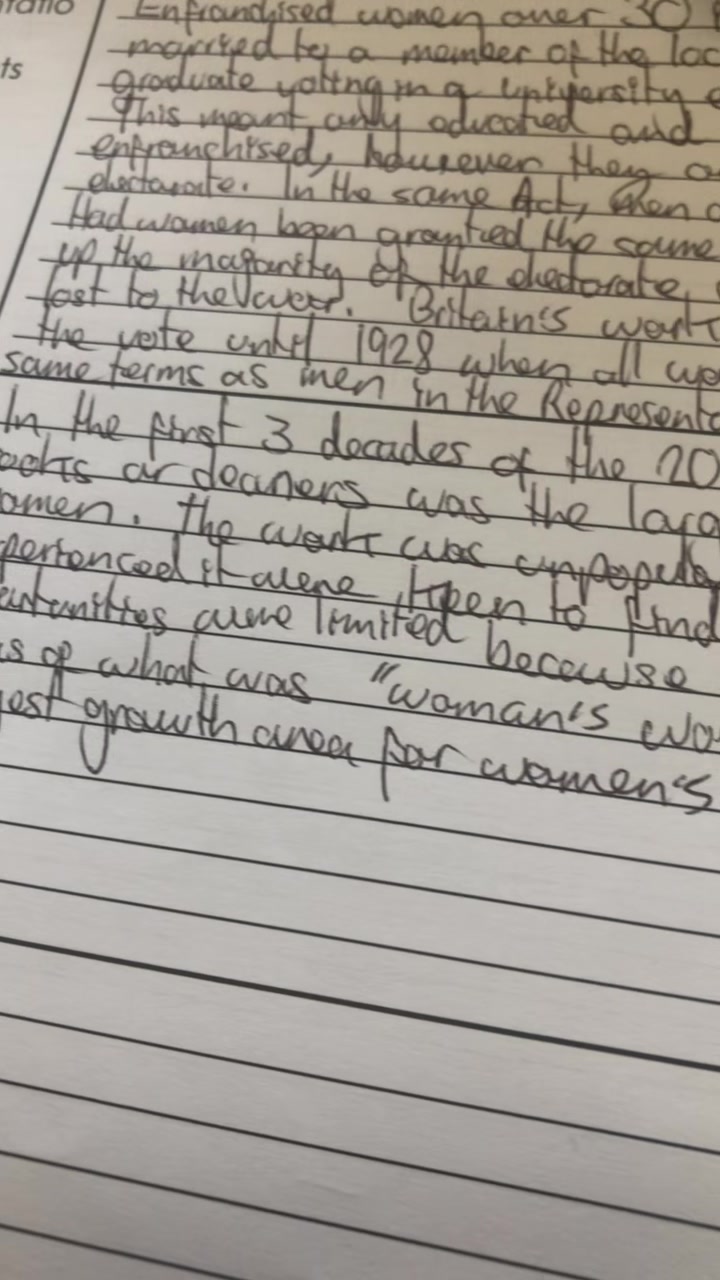 ts
Enfranchised women over 30
married to a member of the loc
graduate voting in a university c
This meant only educated and
enfranchised, however they a
electorate. In the same Act, men
Had women been granted the same
up the majority of the electorate,
lost to the war. Britain's work
the vote until 1928 when all wo
same terms as men in the Represent
In the first 3 decades of the 20
ooks or cleaners was the larg
omen. The work was unpopula
perienced it were keen to find
ortunities were limited because
s of what was "woman's wo
est growth area for women's